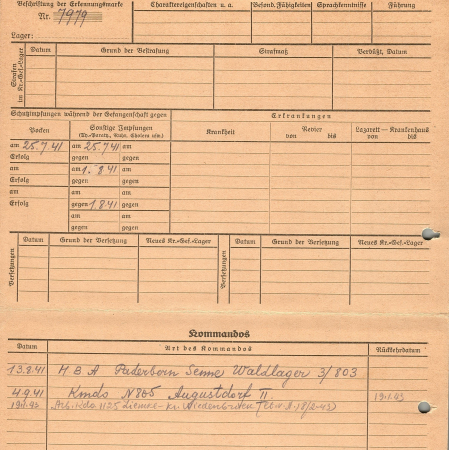 Beschriftung der Erkennungsmarke
Nr. 7979
Charaktereigenschaften u. a.
Besond. Fähigkeiten
Sprachkenntnisse
Führung
Lager:
Strafen im Kr.-Gef.-Lager
Datum
Grund der Bestrafung
Strafmaß
Verbüßt, Datum
Schutzimpfungen während der Gefangenschaft gegen
Erkrankungen
Pocken
Sonstige Impfungen
(Ty.-Paraty., Ruhr, Cholera usw.)
Krankheit
Revier
von bis
Lazarett — Krankenhaus
von bis
am 25.7.41 am 25.7.41 am
Erfolg gegen gegen
am am 1. 8 41 am
Erfolg gegen gegen
am am am
Erfolg gegen 1.8.41 gegen
am am
gegen gegen
Versetzungen
Datum
Grund der Versetzung
Neues Kr.-Gef.-Lager
Versetzungen
Datum
Grund der Versetzung
Neues Kr.-Gef.-Lager
Kommandos
Datum
Art des Kommandos
Rückkehrdatum
13.8.41 H B A Paderborn Senne Waldlager 3/803
4.9.41 Kmdo N 865 Augustdorf II. 19.1.43
19.1.43 Arb. Kdo 1125 - Kr. Wiedenbrück